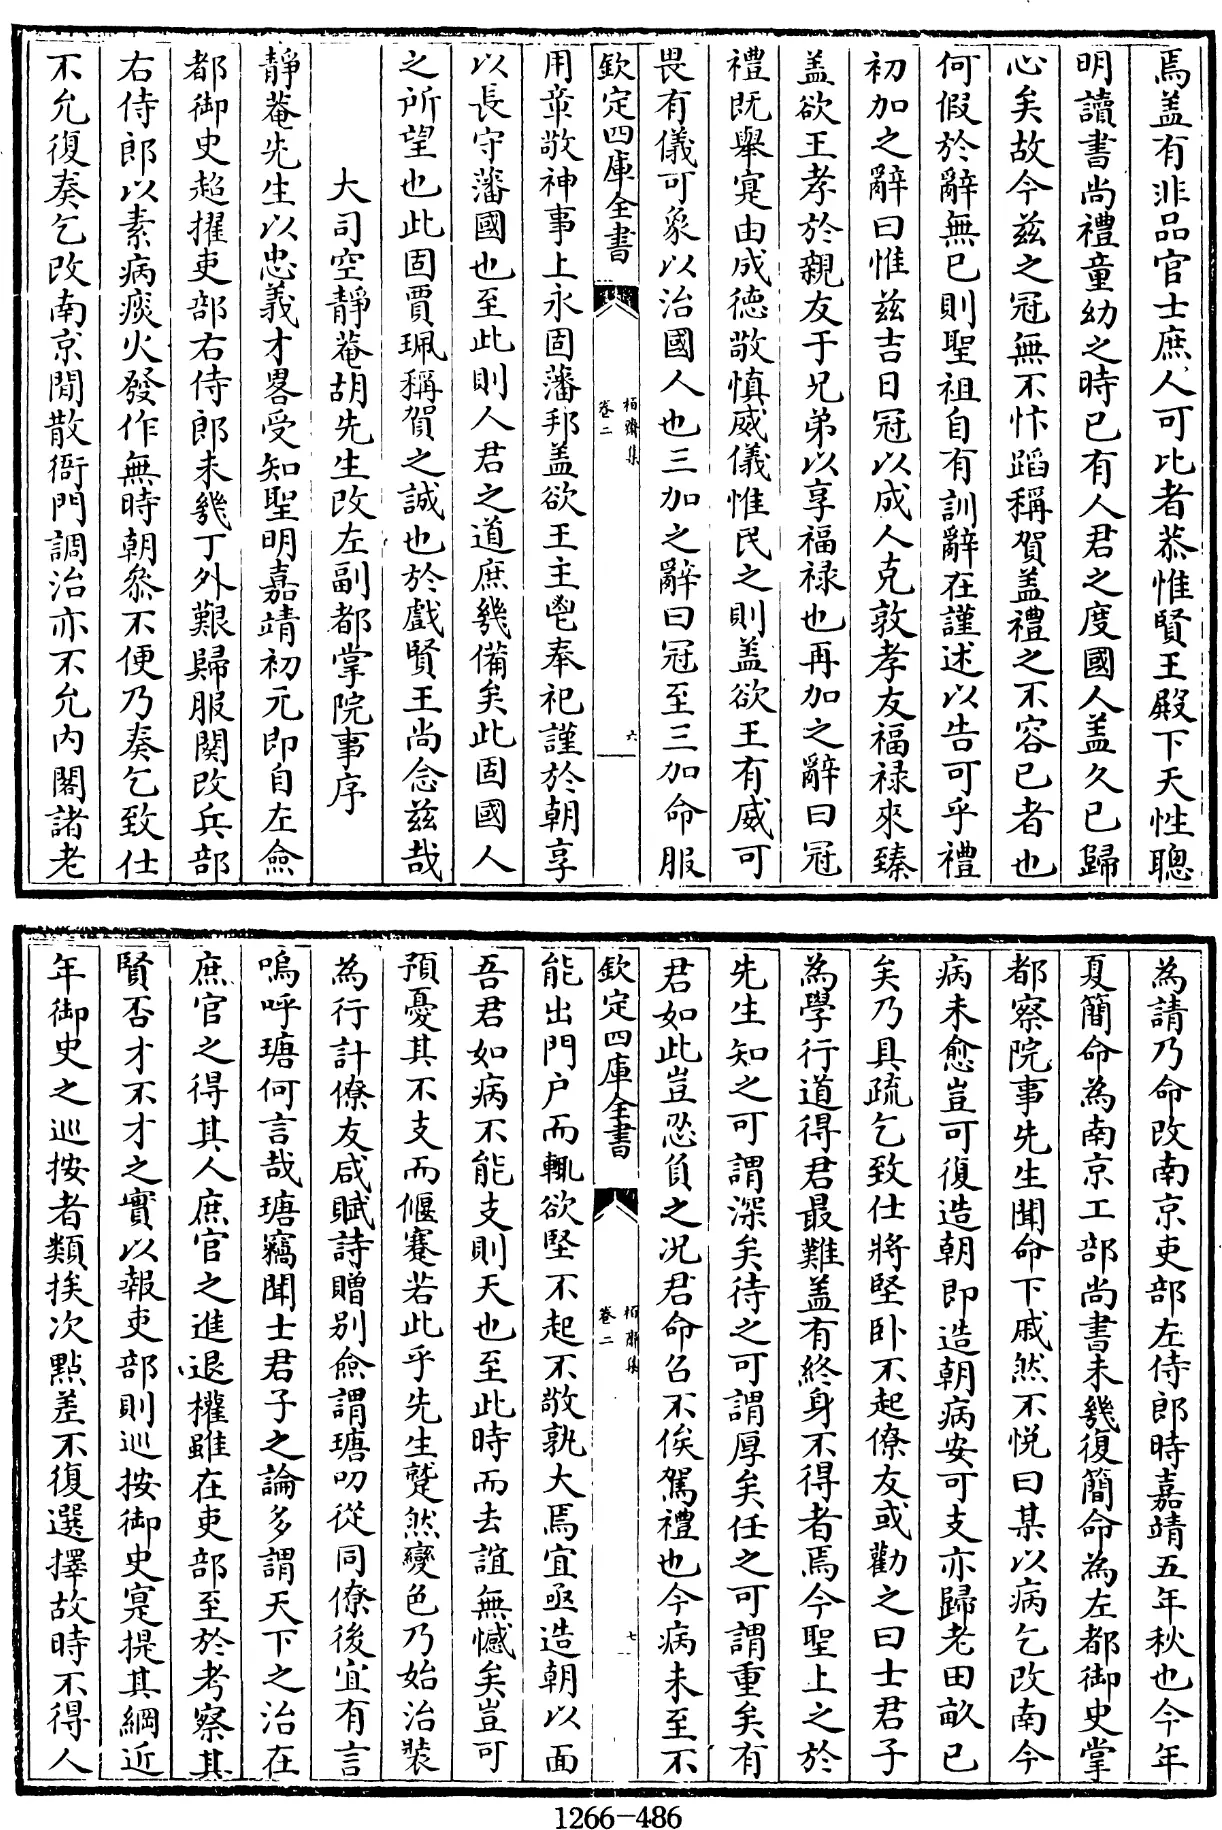 焉盖有非品官士庶人可比者恭惟賢王殿下天性聰
明讀書尚禮童幼之時已有人君之度國人盖久已歸
心矣故今兹之冠無不忭蹈稱賀盖禮之不容已者也
何假於辭無已則聖祖自有訓辭在謹述以告可乎禮
初加之辭曰惟兹吉日冠以成人克敦孝友福禄來臻
盖欲王孝於親友于兄弟以享福禄也再加之辭曰冠
禮既舉寔由成徳敬慎威儀惟民之則盖欲王有威可
畏有儀可象以治國人也三加之辭曰冠至三加命服
欽定四庫全書
栢齋集
卷二
六
用章敬神事上永固藩邦盖欲王主鬯奉祀謹於朝享
以長守藩國也至此則人君之道庶幾備矣此固國人
之所望也此固賈珮稱賀之誠也於戲賢王尚念兹哉
大司空靜菴胡先生改左副都掌院事序
靜菴先生以忠義才畧受知聖明嘉靖初元即自左僉
都御史超擢吏部右侍郎未幾丁外艱歸服闋改兵部
右侍郎以素病痰火發作無時朝叅不便乃奏乞致仕
不允復奏乞改南京閒散衙門調治亦不允内閣諸老
為請乃命改南京吏部左侍郎時嘉靖五年秋也今年
夏簡命為南京工部尚書未幾復簡命為左都御史掌
都察院事先生聞命下戚然不悦曰某以病乞改南今
病未愈豈可復造朝即造朝病安可支亦歸老田畝已
矣乃具疏乞致仕將堅卧不起僚友或勸之曰士君子
為學行道得君最難盖有終身不得者焉今聖上之於
先生知之可謂深矣待之可謂厚矣任之可謂重矣有
君如此豈忍負之况君命召不俟駕禮也今病未至不
欽定四庫全書
栢齋集
卷二
七
能出門户而輒欲堅不起不敬孰大焉宜亟造朝以面
吾君如病不能支則天也至此時而去誼無憾矣豈可
預憂其不支而偃蹇若此乎先生蹵然變色乃始治裝
為行計僚友咸賦詩贈别僉謂瑭叨從同僚後宜有言
嗚呼瑭何言哉瑭竊聞士君子之論多謂天下之治在
庶官之得其人庶官之進退權雖在吏部至於考察其
賢否才不才之實以報吏部則巡按御史寔提其綱近
年御史之巡按者類挨次點差不復選擇故時不得人
1266-486